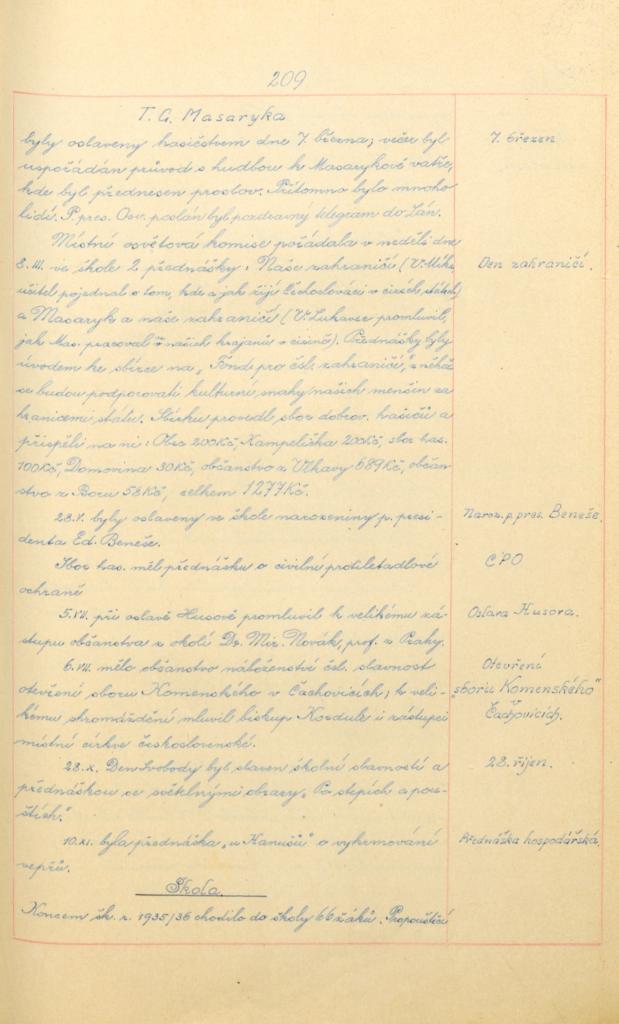 209
T. G. Masaryka
byly oslaveny hasičstvem dne 7. března; večer byl
uspořádán průvod s hudbou k Masarykově vatře,
kde byl přednesen proslov. Přítomno bylo mnoho
lidí. P. pres. Osv. poslán byl pozdravný telegram do Lán.
7. březen
Místní osvětová komise pořádala v neděli dne
8. III. ve škole 2 přednášky: Naše zahraničí (V. Mik,
učitel pojednal o tom, kde a jak žijí Čechoslováci v cizích státech)
a Masaryk a naše zahraničí (V. Lukavec promluvil,
jak Mas. pracoval u našich krajanů v cizině). Přednášky byly
úvodem ke sbírce na „Fond pro čsl. zahraničí", z něhož
se budou podporovati kulturní snahy našich menšin za
hranicemi státu. Sbírku provedl sbor dobrov. hasičů a
přispěli na ni: Obec 200Kč, Kampelička 200Kč, sbor has.
100Kč, Domovina 30Kč, občanstvo z Vlkavy 689Kč, občan
stvo z Boru 58Kč, celkem 1277Kč.
Den zahraničí.
28.V. byly oslaveny ve škole narozeniny p. presi-
denta Ed. Beneše.
Naroz. p. pres. Beneše.
Sbor has. měl přednášku o civilní protiletadlové
ochraně
CPO
5.VII. při oslavě Husově promluvil k velikému zá-
stupu občanstva z okolí Dr. Mir. Novák, prof. z Prahy.
Oslava Husova.
6.VII. mělo občanstvo náboženství čsl. slavnost
otevření sboru Komenského v Čachovicích; k veli-
kému shromáždění mluvil biskup Kordule i zástupci
místní církve československé.
Otevření
„sboru Komenského"
v Čachovicích.
28.X. Den Svobody byl slaven školní slavností a
přednáškou se světelnými obrazy „Po stepích a pou-
štích."
28. říjen.
10.XI. byla přednáška „u Hanušů" o vykrmování
vepřů.
Přednáška hospodářská.
Škola.
Koncem šk. r. 1935/36 chodilo do školy 66 žáků. Propouštěcí